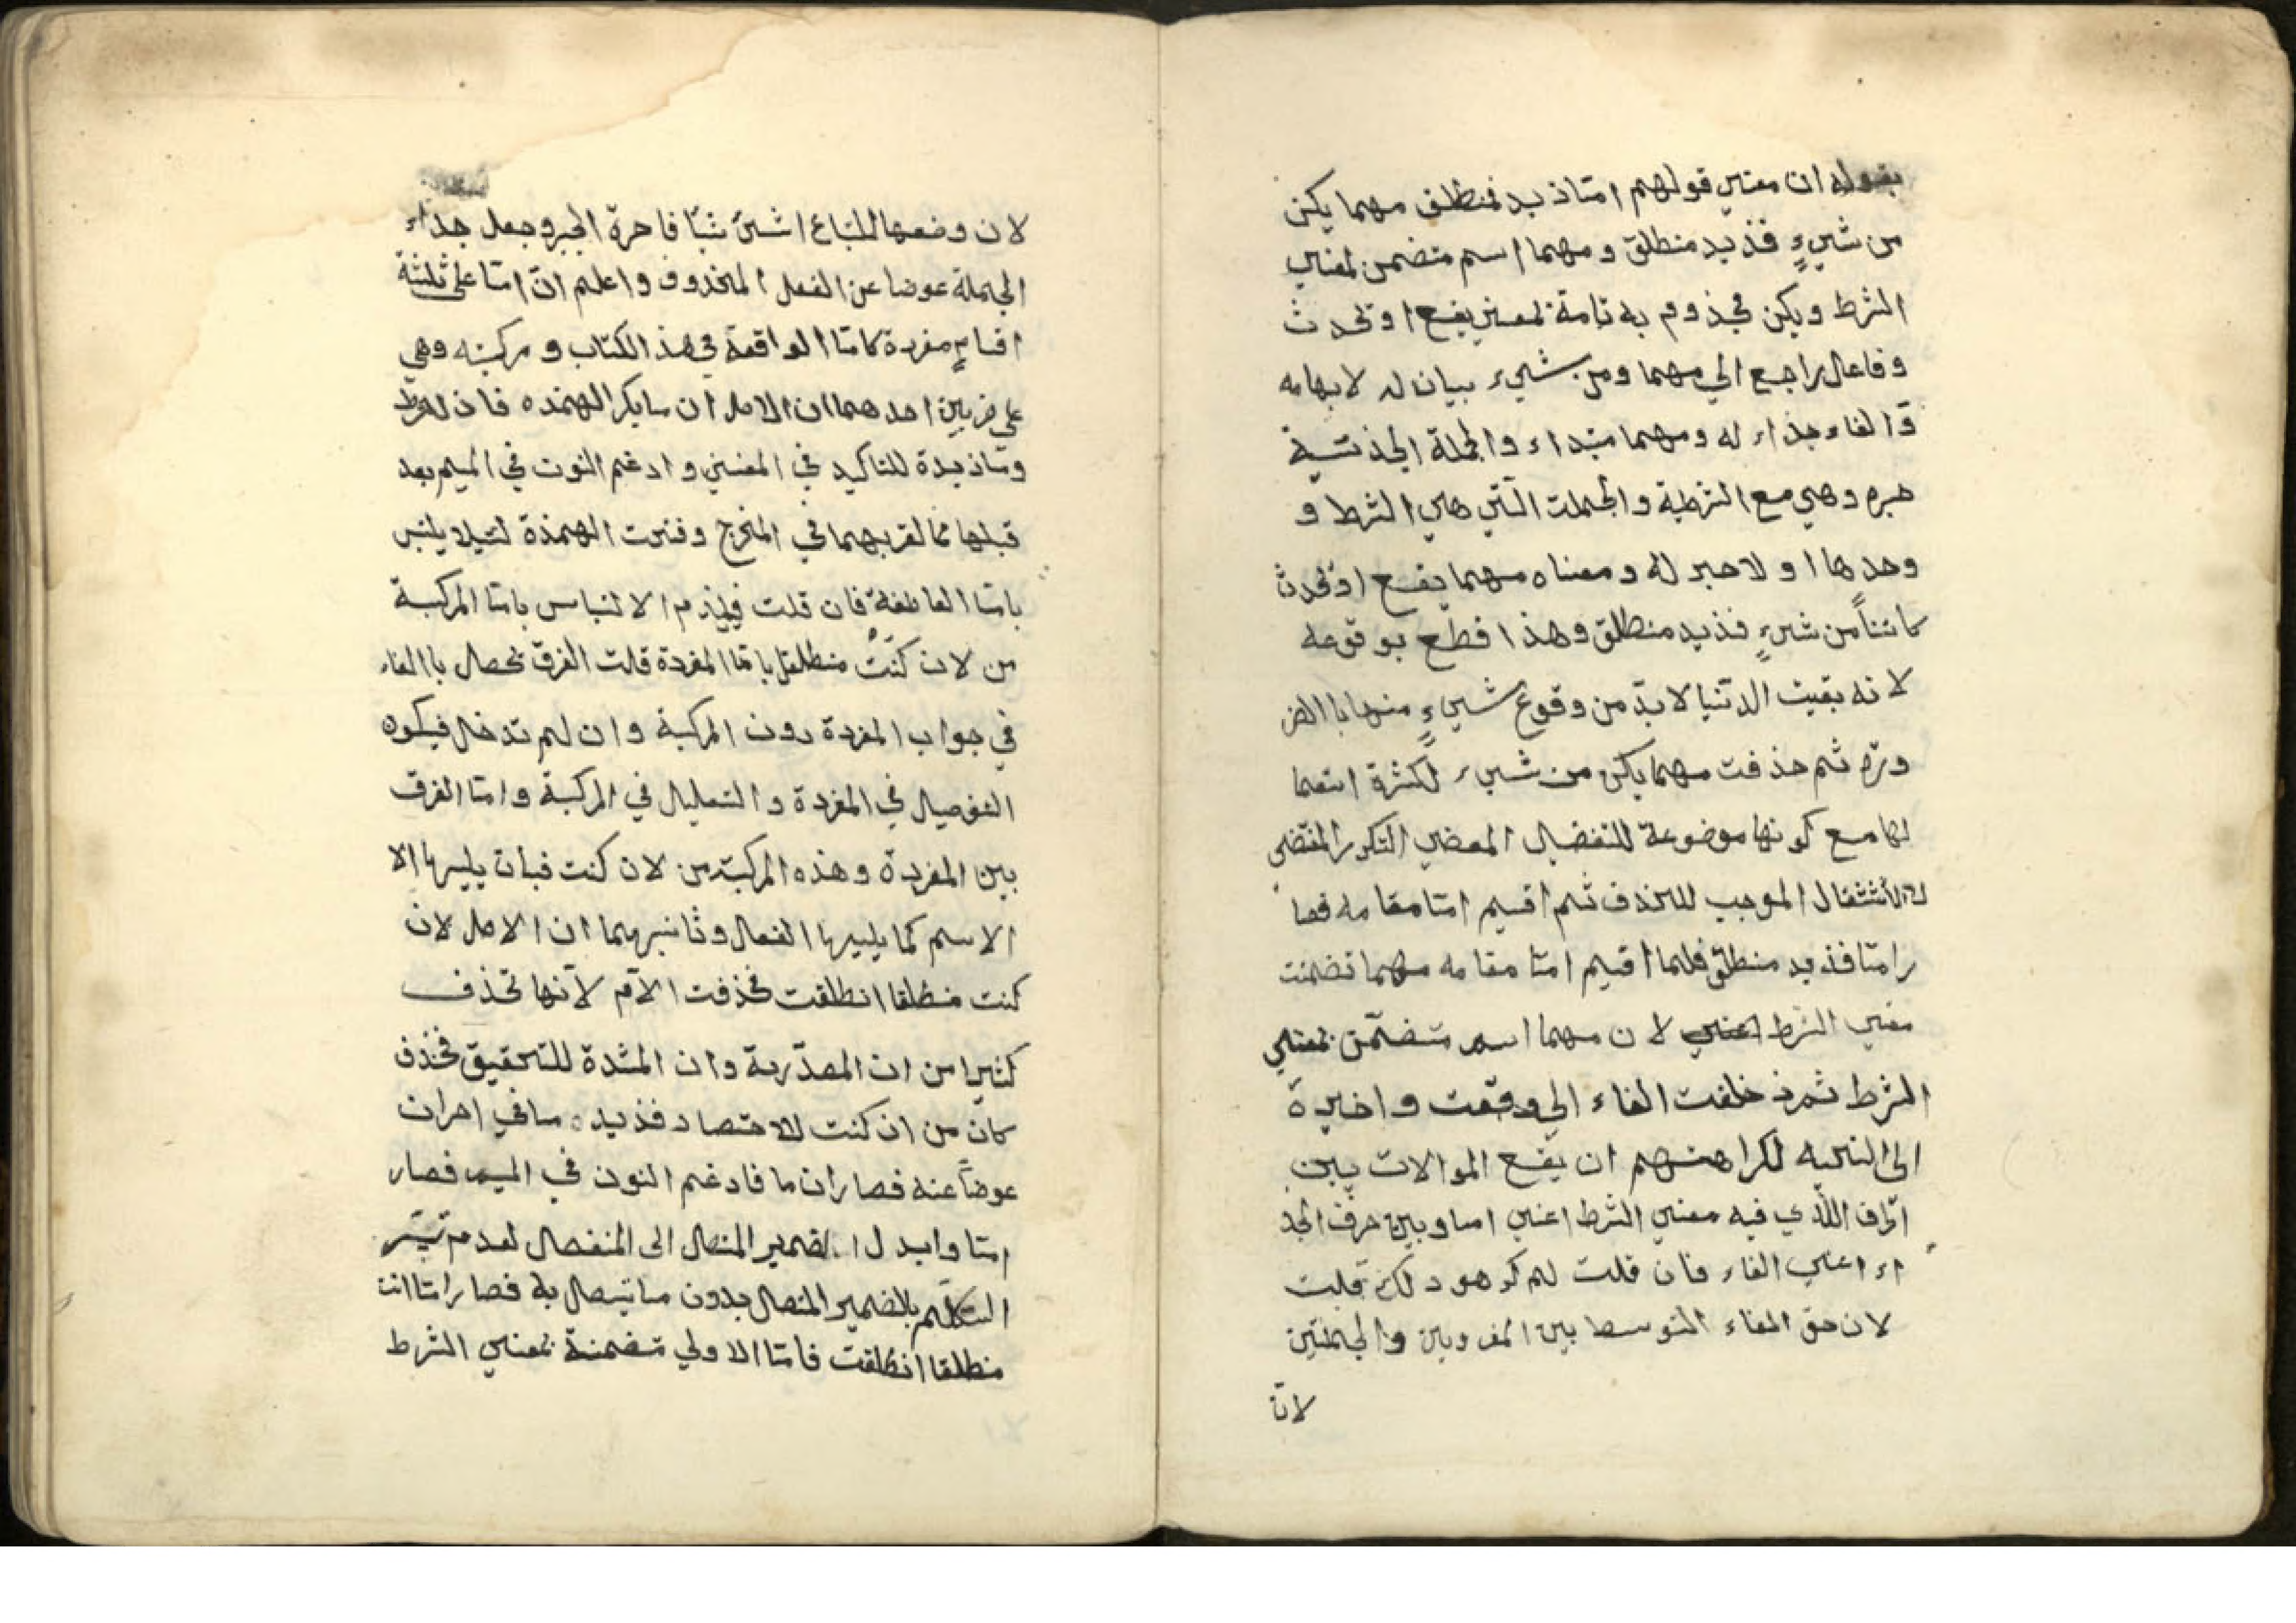 بقوله ان معني قولهم امّا زيد فمنطلق مهما يكن
من شيءٍ فزيد منطلق ومهما اسم متضمن لمعني
الشرط ويكن مجزوم به تامة بمعني يقع او تحدث
وفاعل راجع الي مهما ومن شيء بيان له لابهامه
والفاء جزاء له ومهما مبتداء والجملة الجزئية
خبره وهي مع الشرطية والجملت الّتي هي الشرط و
وحدها او لا خبر له ومعناه مهما يقع او تحدث
كائناً من شيءٍ فزيد منطلق وهذا قطع بوقوعه
لانه بقيت الدّنيا لا بدّ من وقوع شيءٍ منها باالضر
ورّه ثم حذفت مهما يكن من شيء لكثرة استعما
لها مع كونها موضوعة للتفضيل المقضي التكرر المقتضي
للاستثقال الموجب للحذف ثم اقيم امّا مقامه فصا
ر امّا فزيد منطلق فلما اقيم امّا مقامه مهما تضمنت
معني الشرط لان مهما اسم متضمّن بمعني
الشرط ثم زخلفت الفاء الي وقعت واخيرة
الى الخبرية لكراهتهم ان يقع الموالات بين
الحرف الّذي فيه معني الشرط اعني اما وبين حرف الجز
اء اعني الفاء فان قلت لم كرهو ذلك قلت
لان حق الفاء التوسط بين المفردين والجملتين
لانّ
لان وضعها للتباع اشئ شئا فاخرة الخبر وجعل جزاء
الجملة عوضا عن الفعل المحذوف واعلم انّ امّا على ثلثة
اقسامٍ مفردة كامّا الواقعة في هذ الكتاب ومركبته وهي
على ضربين احدهما ان الاصل ان ما بكر الهمزه فان لشرط
وما زيدة للتاكيد في المعني وادغم النون في الميم بعد
قبلها مما لقربهما في المخرج وفتحت الهمزة لئيلا يلتبس
بامّا العاطفة فان قلت فيلزم الالتباس بامّا المركبة
من لان كنتُ منطلقا بامّا المفردة قلت الفرق يحصل باالفاء
في جواب المفردة دون المركبة وان لم تدخل فيكون
التفصيل في المفردة والتعليل في المركبة وامّا الفرق
بين المفردة وهذه المركبة من لان كنت فبان يليها الا
الاسم كما يليها الفعل وثانيهما ان الاصل لان
كنت منطلقا انطلقت فحذفت الاّم لانّها تحذف
كثيرا من ان المصدّرية وان المشدة للتحقيق فحذف
كان من ان كنت للاختصار فزيده ما في اخر ان
عوضاً عنه فصار ان ما فادغم النون في الميم فصار
امّا وابدل الضمير المتصل الى المنفصل لعدم تيسّر
التكلّم بالضمير المتصل بدون ما يتصل به فصار امّا انت
منطلقا انطلقت فامّا الاولي متضمنة بمعني الشرط